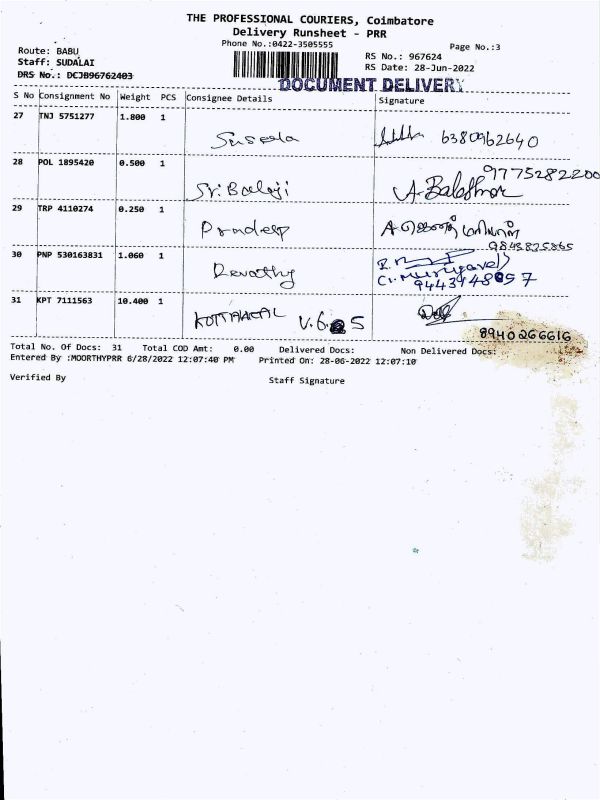 THE PROFESSIONAL COURIERS, Coimbatore
Delivery Runsheet - PRR
Phone No.:0422-3505555
Page No.:3
Route: BABU
Staff: SUDALAI
DRS No.: DCJB96762403
RS No.: 967624
RS Date: 28-Jun-2022
DOCUMENT DELIVERY
S No Consignment No Weight PCS Consignee Details Signature
27 TNJ 5751277 1.800 1 Suseela 6380962640
28 POL 1895420 0.500 1 Sri Balaji 9775282200
29 TRP 4110274 0.250 1 Pradeep 9843825865
30 PNP 530163831 1.060 1 Revathy C. Murugavel 9443948057
31 KPT 7111563 10.400 1 KOTTAKAL 8940266616
Total No. Of Docs: 31 Total COD Amt: 0.00 Delivered Docs: Non Delivered Docs:
Entered By :MOORTHYPRR 6/28/2022 12:07:40 PM Printed On: 28-06-2022 12:07:10
Verified By Staff Signature